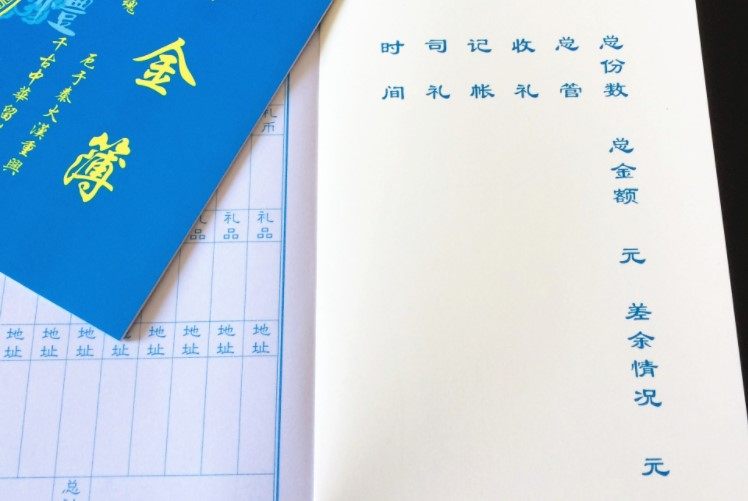 禮
魂
金簿
厄于秦火漢重興
千古中華留
礼币
礼品 礼品 礼品
地址 地址 地址 址 地址 地址 地址 地址
总
总份数 总金额 元 差余情况 元
总管
收礼
记帐
司礼
时间